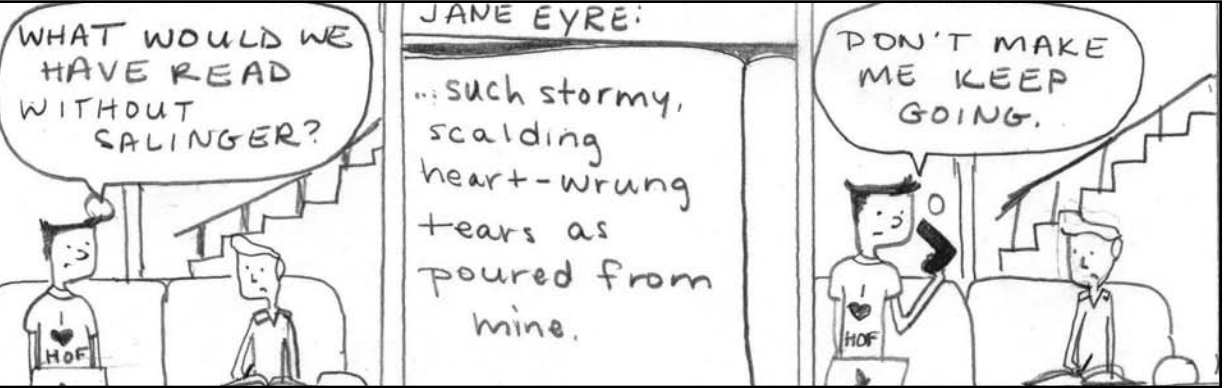 WHAT WOULD WE
HAVE READ
WITHOUT
SALINGER?
I
♥
HOF
JANE EYRE:
... such stormy,
scalding
heart-wrung
tears as
poured from
mine.
DON'T MAKE
ME KEEP
GOING.
I
♥
HOF